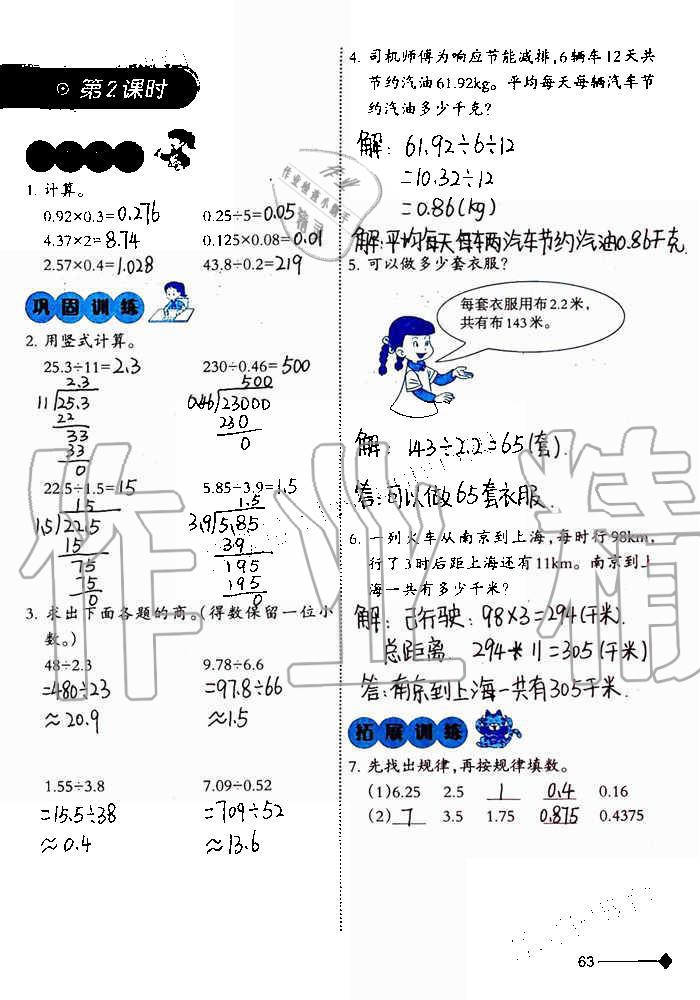 第2课时
1. 计算。
0.92×0.3=0.276 0.25÷5=0.05
4.37×2=8.74 0.125×0.08=0.01
2.57×0.4=1.028 43.8÷0.2=219
巩固训练
2. 用竖式计算。
25.3÷11=2.3 230÷0.46=500
2.3 500
11 25.3 0.46 23000
22 230
33 0
33
0
22.5÷1.5=15 5.85÷3.9=1.5
15 1.5
1.5 22.5 3.9 5.85
15 39
75 195
75 195
0 0
3. 求出下面各题的商。(得数保留一位小
数。)
48÷2.3 9.78÷6.6
=480÷23 =97.8÷66
≈20.9 ≈1.5
1.55÷3.8 7.09÷0.52
=15.5÷38 =709÷52
≈0.4 ≈13.6
4. 司机师傅为响应节能减排,6辆车12天共
节约汽油61.92kg。平均每天每辆汽车节
约汽油多少千克?
解: 61.92÷6÷12
=10.32÷12
=0.86(kg)
解:平均每天每辆汽车节约汽油0.86千克.
5. 可以做多少套衣服?
每套衣服用布2.2米,
共有布143米。
解: 143÷2.2=65(套).
答:可以做65套衣服.
6. 一列火车从南京到上海,每时行98km,
行了3时后距上海还有11km。南京到上
海一共有多少千米?
解:已行驶:98×3=294(千米)
总距离 294+11=305(千米)
答:南京到上海一共有305千米.
拓展训练
7. 先找出规律,再按规律填数。
(1)6.25 2.5 1 0.4 0.16
(2) 7 3.5 1.75 0.875 0.4375
63
作业精
作业
作业检查小助手
精灵